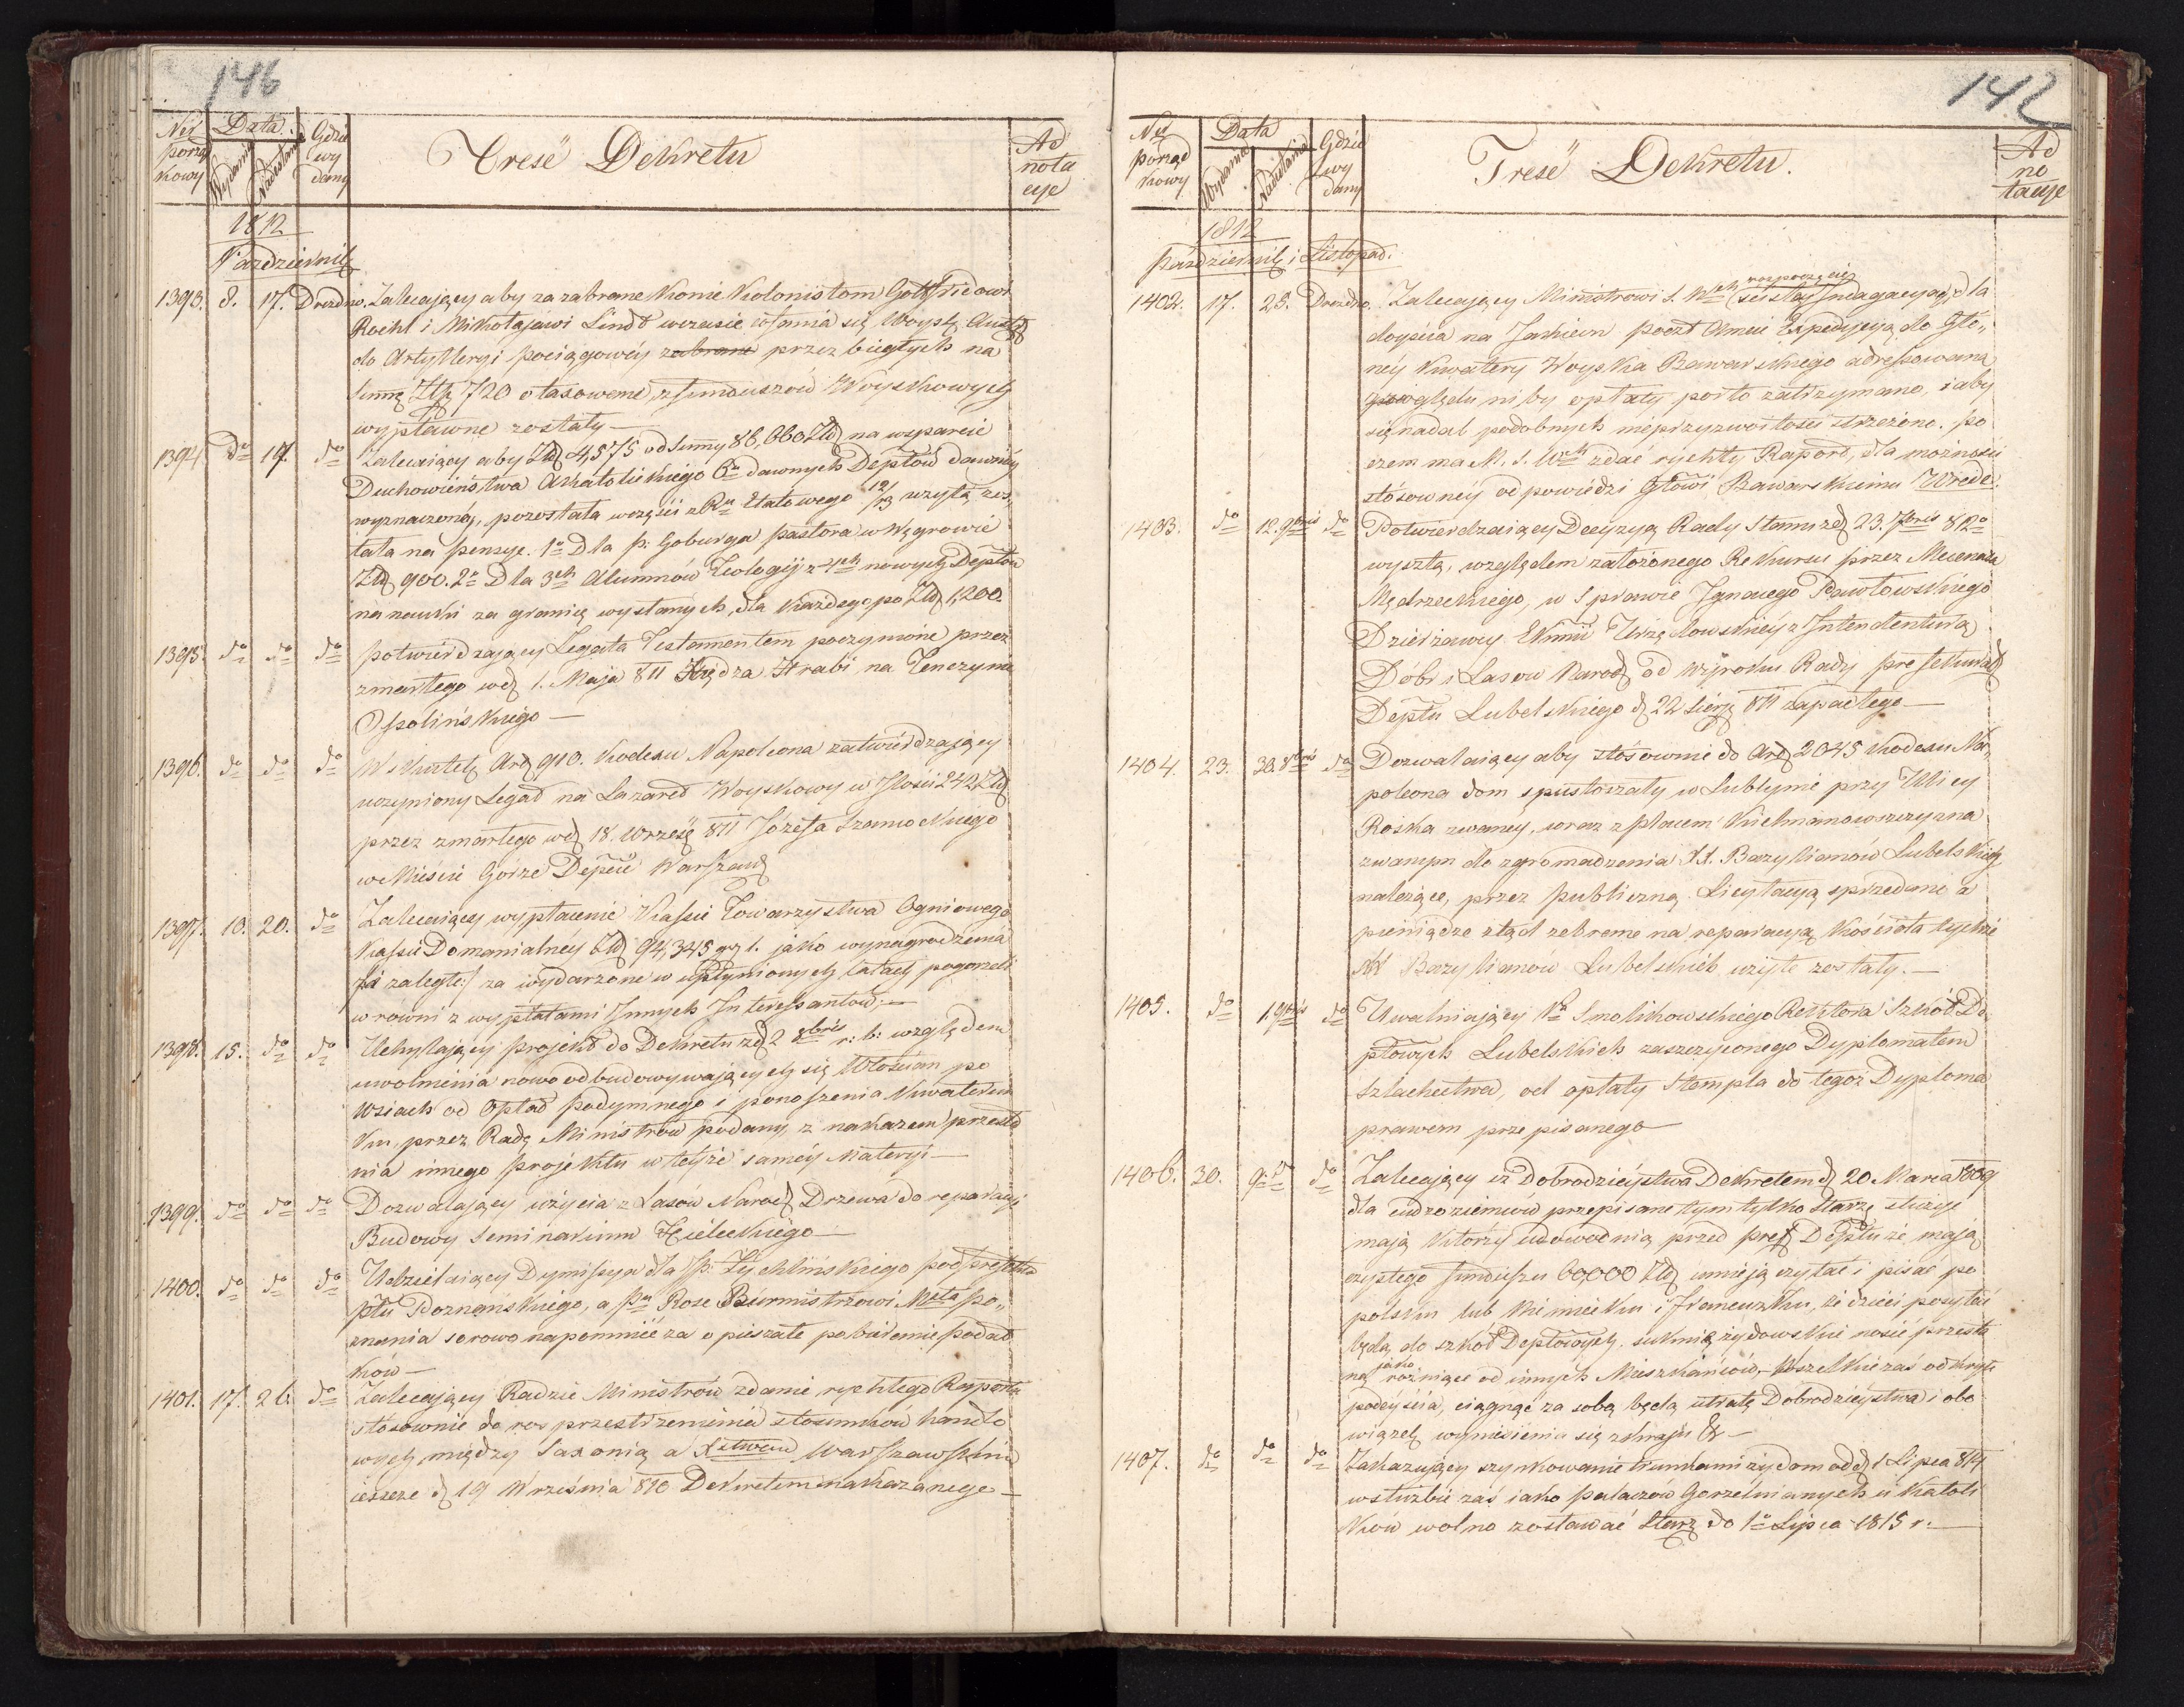 146
Ner porząkowy | Data Wydania Nadesłania | Gdzie wydany | Treść Dekretu | Adnotacje
1812
Październik
1393. 8. 17. Drezdno. Zalecający aby za zabrane konie Kolonistom Gottfridowi
Roehl i Mikołajowi Lindt wczasie cofania się Woysk Austr
do Artylleryi pociągowéy zabrane przez biegłych na
summę Złp 720 otaxowane, z funduszów Woyskowych
wypłacone zostały —
1394 do 17. do Zalecaiący aby Złp 4,575 od summy 86,660 Złp na wsparcie
Duchowieństwa Akatolickiego 6u dawnych Deptów dawniéy
wyznaczonéy, pozostała wczęści z Ru Etatowego 12/13 użytą zos,,
tała na pensye. 1o Dla p: Goburga pastora w Węgrowie
Złp 900. 2o Dla 3ch Alumnów Teologij z 4ch nowych Deptów
na nauki za granicę wysłanych, dla każdego po Złp 1,200.
1395. do do do potwierdzający Legata Testamentem poczynione przez
zmarłego wd 1. Maja 811 Xiędza Hrabi na Tenczynie
Ossolińskiego —
1396. do do do Wskutek Art 910. Kodexu Napoleona zatwierdzający
uczyniony Legat na Lazaret Woyskowy w Ilości 242 Złp
przez zmarłego wd 18. Wrześ 811 Józefa Szamockiego
w Mieście Górze Depcie Warszaw
1397. 10. 20. do Zalecaiący wypłacenie Kassie Towarzystwa Ogniowego
Kassie Domanialnéy Złp 94,345 gr 1. jako wynagrodzenia
za zaległe/ za wydarzone w upłynionych latach pogorzeli
w równi z wypłatami Innych Interessantów; —
1398. 15. do do Uchylający projekt do Dekretu zd 2 8bris r: b: względem
uwolnienia nowo odbudowywających się Włościan po
Wsiach od Opłat podymnego i ponoszenia Kwaterun
ku, przez Radę Ministrów podany, z nakazem przesła
nia innego projektu w teyże saméy Materyi —
1399. do do do Dozwalający użycia z Lasów Narod Drzewa do reparacyi
Budowy Seminarium Kieleckiego —
1400. do do do Udzielaiący Dymissyą dla p: Zychlińskiego podprefekta
ptu Poznańskiego, a pu Rose Burmistrzowi Msta Po,,
znania surowo napomnieć za opieszałe pobieranie podat
ków —
1401. 17. 26. do Zalecający Radzie Ministrów zdanie rychłego Raportu
stosownie do rosprzestrzenienia stosunków handlo
wych między Saxonią a Xstwem Warszawskim
ieszcze d 19 Września 810 Dekretem nakazanego —
142
Ner porządkowy | Data Wydania Nadesłania | Gdzie wydany | Treść Dekretu. | Adnotacje
1812
Październik i Listopad.
1402. 17. 25. Drezdno. Zalecający Ministrowi S. Wch rozpoczęcie
ścisłey Indagacyi dla
doyścia na Jakiem poczt Amcie Expedycyą do Głó,,
néy Kwatery Woyska Bawarskiego adressowaną
względu niby opłaty porto zatrzymano, i aby
się nadal podobnych nieprzyzwoitości strzeżono. po
czem ma M. S. Wch zdać rychły Raport, dla możności
stósownéy odpowiedzi Głowi Bawarskiemu Wrede.
1403. do 12. 9bris do Potwierdzaiący Decyzyą Rady Stanu zd 23. 7bris 812o
wyszłą, względem założonego Rekursu przez Mecenasa
Mędrzeckiego, w Sprawie Ignacego Pawłowskiego
Dzierżawcy Ekonii Urzędowskiéy z Intendenturą
Dóbr i Lasów Narod od Wyroku Rady prefekturał
Deptu Lubelskiego d 22 Sierp 811 zapadłego —
1404. 23. 30. 8bris do Dozwalaiący aby stósownie do Art 2045 Kodexu Na,,
poleona dom spustoszały w Lublynie przy Ulicy
Ruska zwanéy, wraz z placem Kielmanowszczyzna
zwanym do zgromadzenia XX. Bazylianów Lubelskich
należące, przez publiczną Licytacyą sprzedane a
pieniądze ztąd zebrane na reparacyą kościoła tychże
XX Bazylianów Lubelskich użyte zostały. —
1405. do 1. 9bris do Uwalniający Pa Smolikowskiego Rektora Szkół De
ptowych Lubelskich zaszczyconego Dyplomatem
Szlachectwa, od opłaty Stempla do tegoż Dyploma
prawem przepisanego —
1406. 30. 9. do Zalecający iż Dobrodzieystwa Dekretem d 20 Marca 1809
dla cudzoziemców przepisane tym tylko Starz służyć
mają którzy udowodnią przed pref Deptu że mają
czystego funduszu 60,000 Złp umieją czytać i pisać po
polsku lub Niemiecku i Francuzku, że dzieci posyłać
będą do szkół Deptowych. suknię żydowskie nosić przesta
ną jako różniące od innych Mieszkańców, Wszelkie zaś odkryte
podeyścia, ciągnąć za sobą będą utratę Dobrodzieystwa i obo
wiązek wyniesienia się z kraju &
1407. do do do Zakazujący szynkowanie trunkami żydom od d 1 Lipca 814
w służbie zaś iako palaczów Gorzelnianych u Katoli
ków wolno zostawać Starz do 1o Lipca 1815 r. —